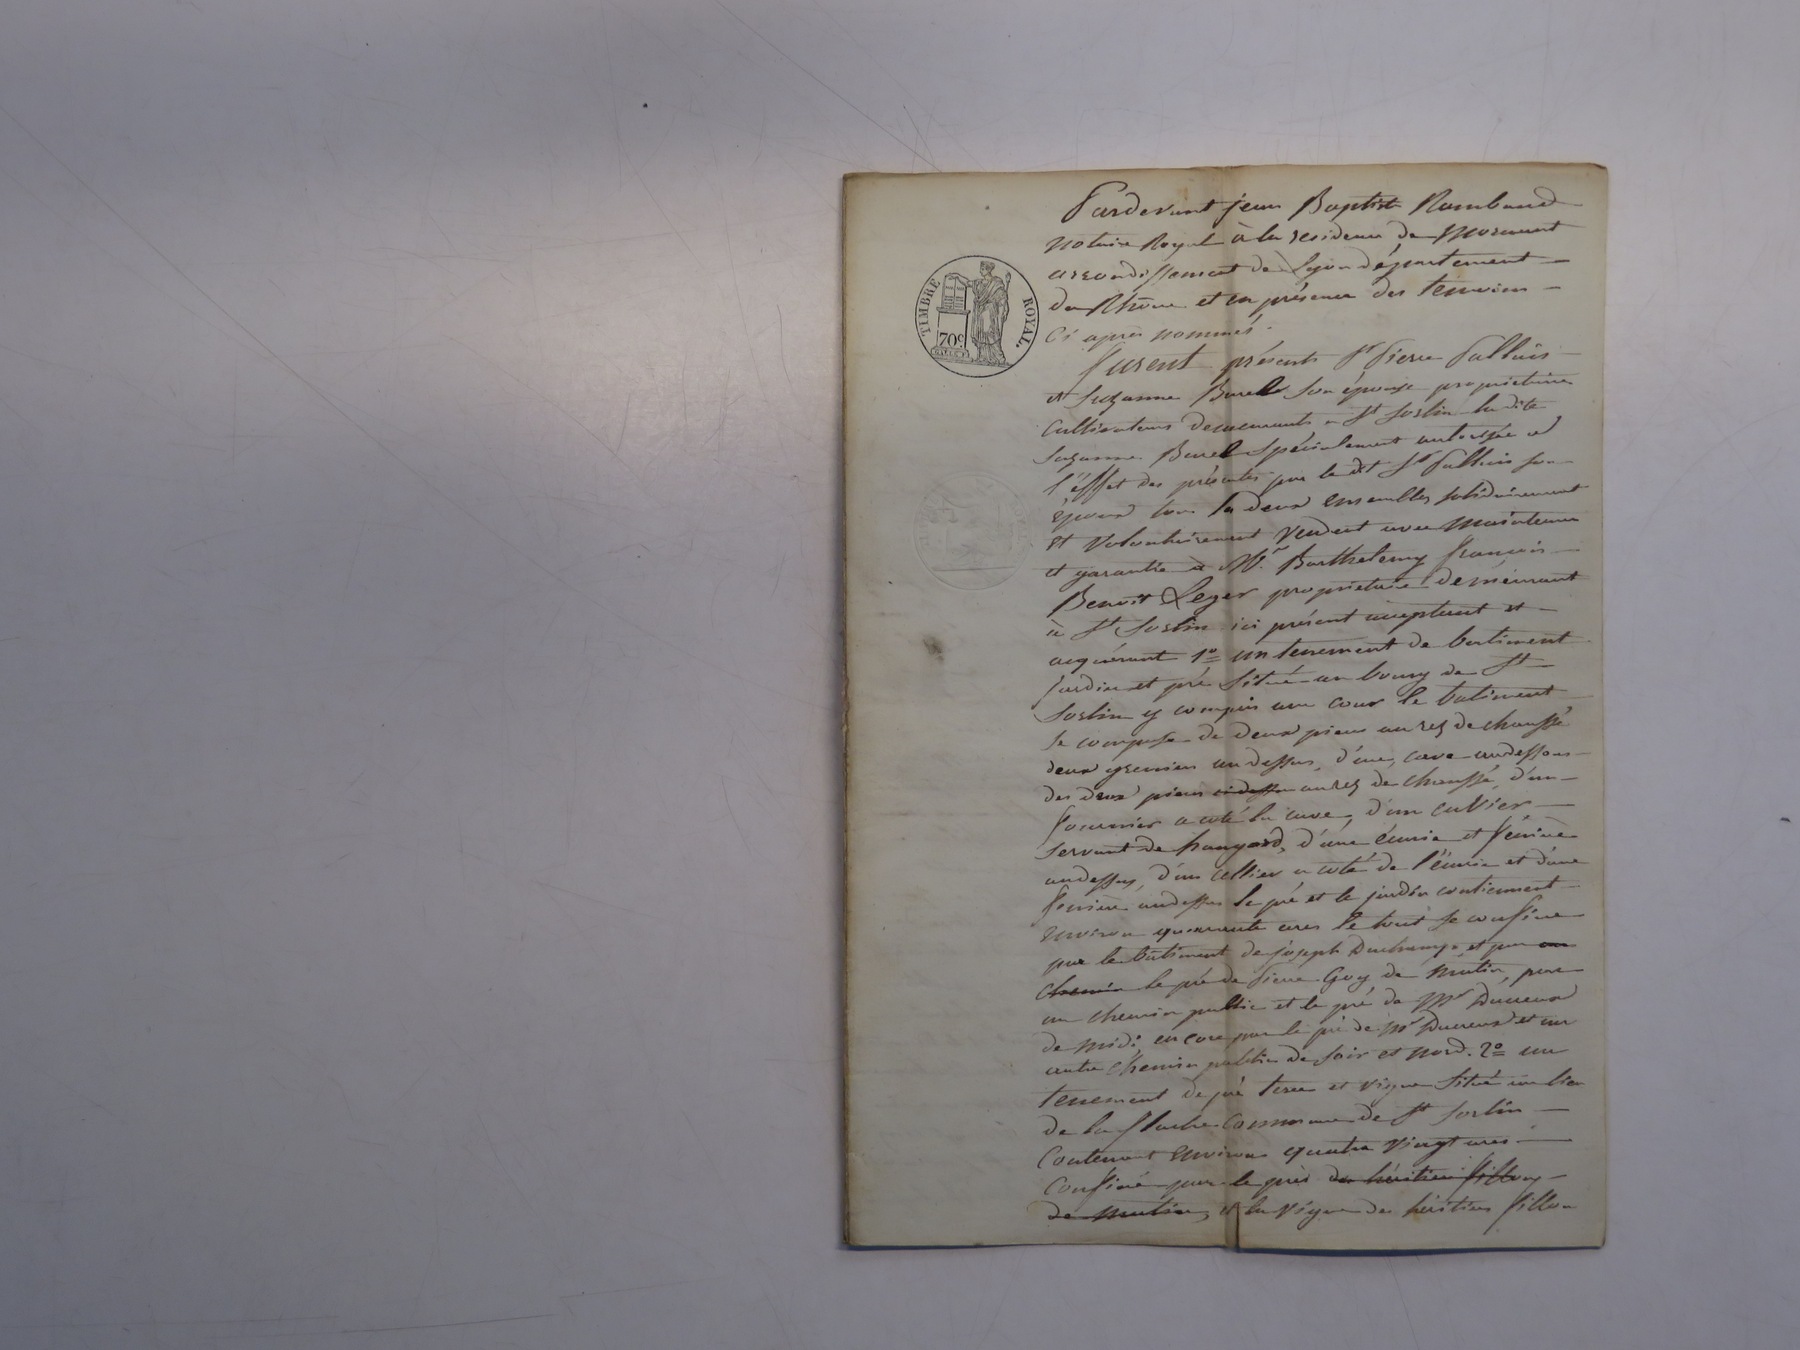 Pardevant jean Baptiste Rambaud
notaire Royal à la residence de Mornant
arrondissement de Lyon département
du Rhône et en présence des temoins
Ci après nommés.
furent présents Sr Pierre
et Suzanne Burel son épouse propriétaires
Cultivateurs demeurants a St Sorlin la dite
Suzanne Burel Spécialement autorisée a
l'éffet des présentes par le dit Sr son
époux tous les deux ensembles solidairement
et Volontairement Vendent avec maintenue
et garantie à Mr. Barthelemy françois
Benoît Leger propriétaire demeurant
à St Sorlin ici présent acceptant et
acquérant 1o un tenement de batiment
jardin et pré Situé au bourg de St
Sorlin y compris une cour le batiment
se compose de deux pieces au rez de chaussé
deux greniers au dessus, d'une cave audessous
des deux pieces au rez de chaussé, d'un
fournier a coté la cave, d'un cuvier
servant de hangard, d'une écurie et feniere
audessus, d'un cellier a coté de l'écurie et d'une
feniere audessus le pré et le jardin contiennent
environ quarante ares le tout se confine
par le bâtiment de joseph Duchamp et par un
chemin le pré de Pierre Goy de matin, par
un chemin public et le pré de Mr Ducreux
de midi, encore par le pré de Mr Ducreux et un
autre chemin public de soir et nord. 2o un
tenement de pré terre et vigne Situé au lieu
de la flache Commune de St Sorlin
Contenant environ quatre vingt ares
Confiné par le pré des héritiers fillon
de matin, et la vigne des héritiers fillon
TIMBRE ROYAL.
70c